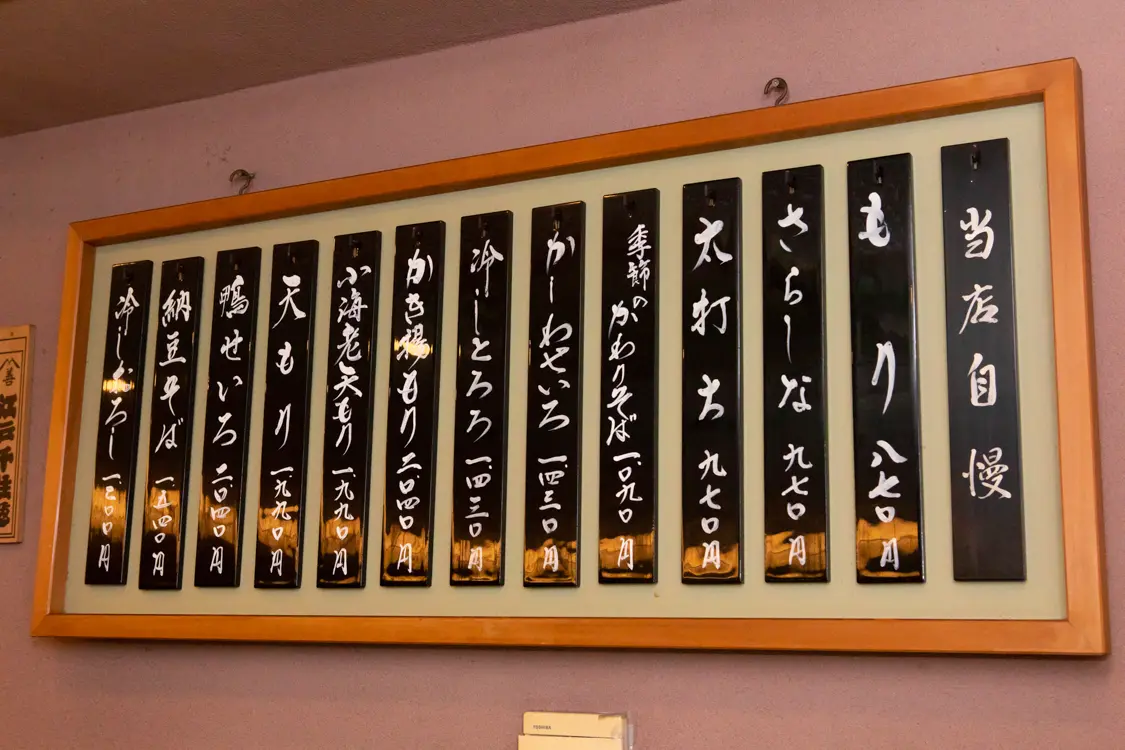 当店自慢
もり 八七〇円
さらしな 九七〇円
太打ち 九七〇円
季節のかわりそば 一、〇九〇円
かしわせいろ 一、四三〇円
冷しとろろ 一、四三〇円
かき揚もり 二〇四〇円
小海老天もり 一、九九〇円
天もり 一、九九〇円
鴨せいろ 二〇四〇円
納豆そば
冷しおろし
善
TOSHIBA